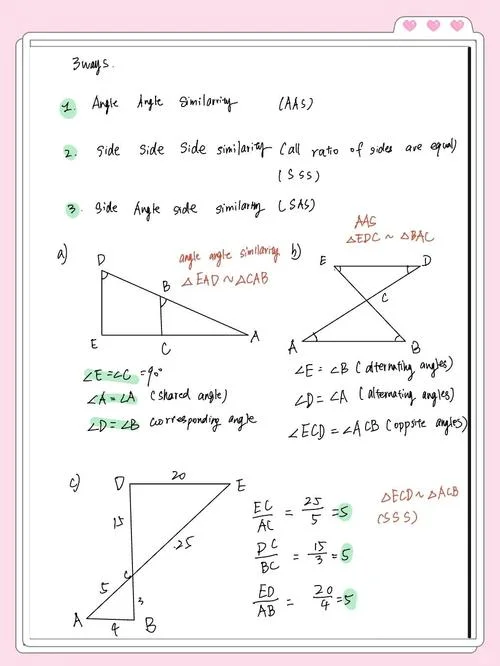 3 ways.
1. Angle Angle similarity (AAS)
2. side side side similarity (all ratio of sides are equal)
(SSS)
3. side Angle side similarity (SAS)
a)
D
B
E
C
A
angle angle similarity
△EAD ~ △CAB
∠E = ∠C = 90°
∠A = ∠A (shared angle)
∠D = ∠B corresponding angle
b)
AAS
△EDC ~ △BAC
E
D
C
A
B
∠E = ∠B (alternating angles)
∠D = ∠A (alternating angles)
∠ECD = ∠ACB (opposite angles)
c)
D
20
E
15
25
C
5
3
A
4
B
EC/AC = 25/5 = 5
DC/BC = 15/3 = 5
ED/AB = 20/4 = 5
△ECD ~ △ACB
(SSS)